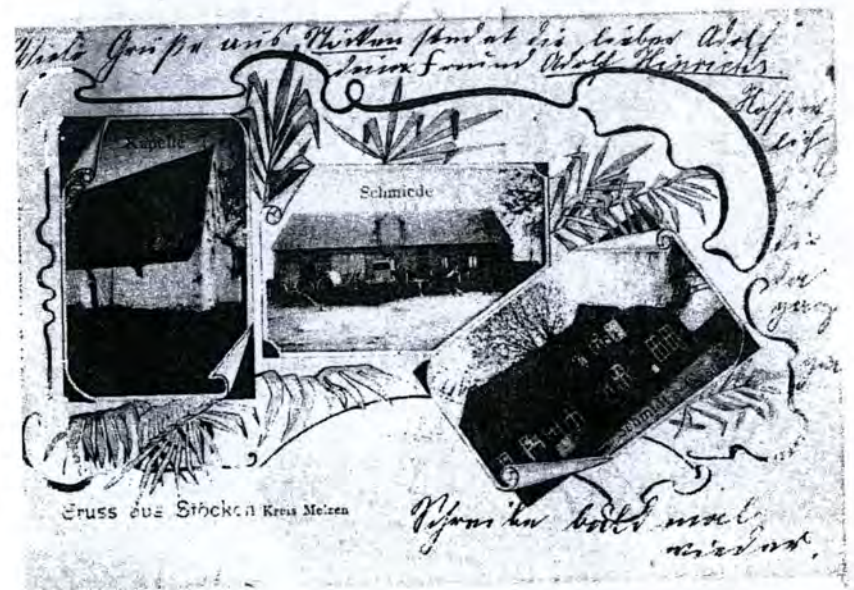 Viele Grüße aus Stöcken sendet dir lieber Adolf
dein Freund Adolf Hinrichs.
Hoffent
lich
die
da
ganz
Kapelle
Schmiede
Gruss aus Stöcken Kreis Melzen
Schreibe bald mal
wieder.